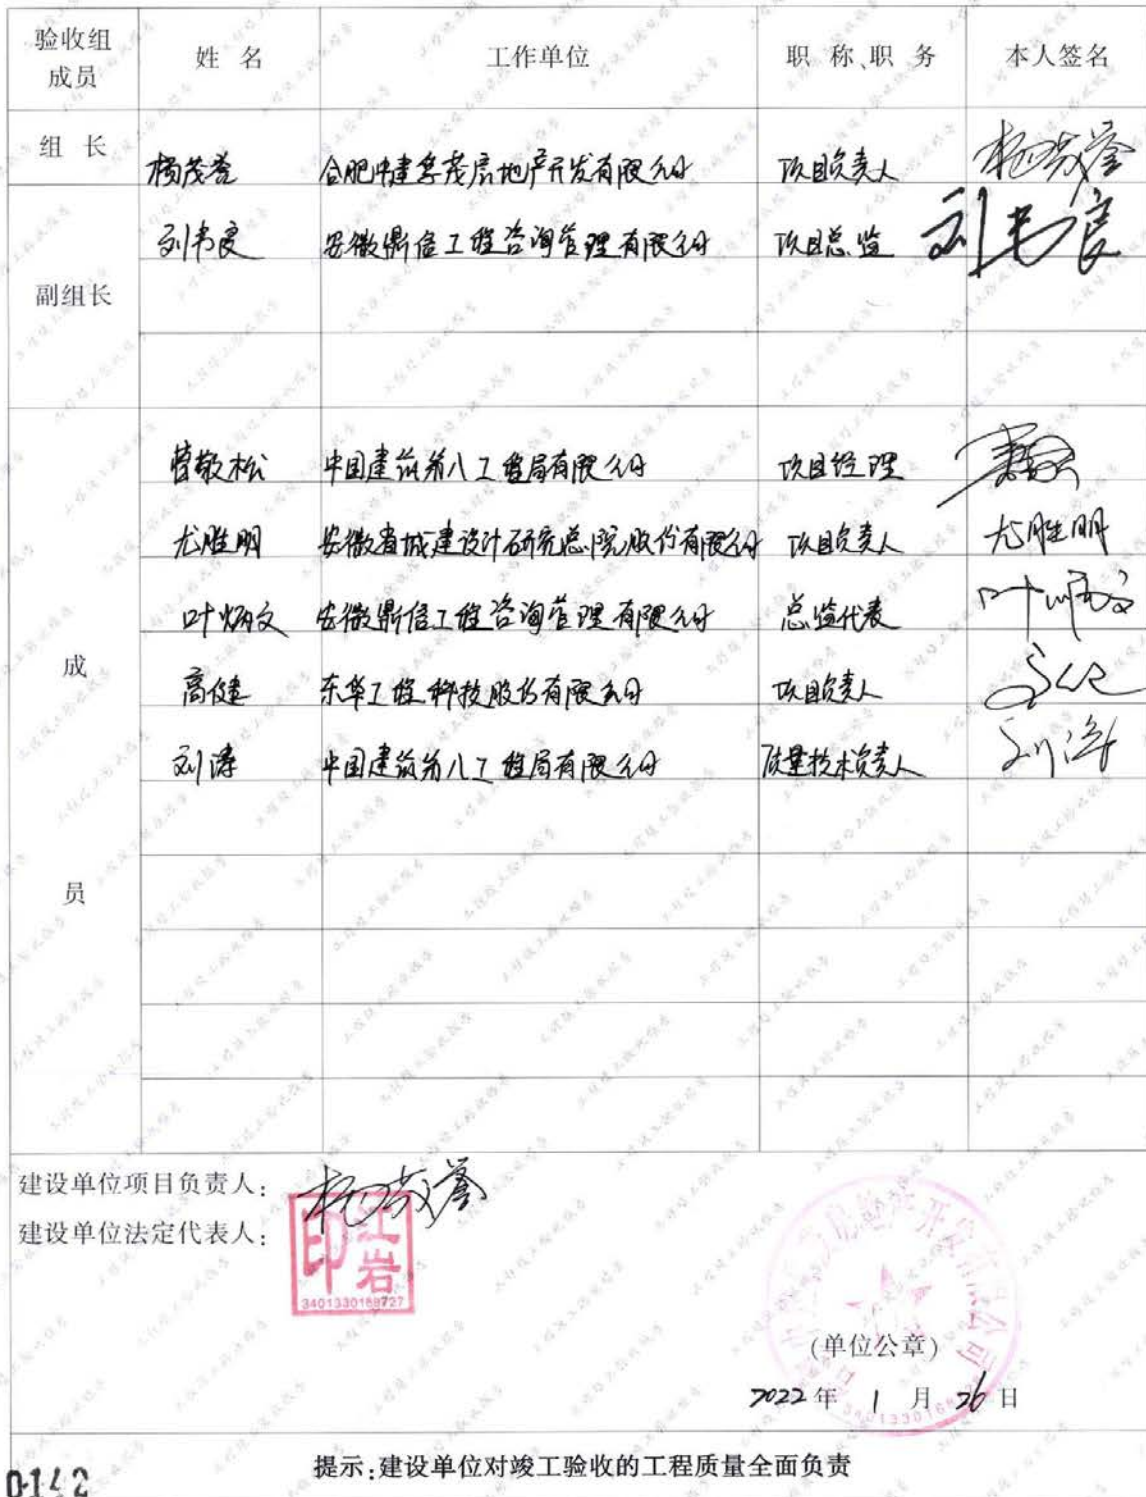 验收组成员 姓 名 工作单位 职 称、职 务 本人签名
组 长 杨茂誉 合肥中建孚茂房地产开发有限公司 项目负责人 杨茂誉
副组长 刘韦良 安徽鼎信工程咨询管理有限公司 项目总监 刘韦良
成员
曹敬松 中国建筑第八工程局有限公司 项目经理
尤胜明 安徽省城建设计研究总院股份有限公司 项目负责人 尤胜明
叶炳文 安徽鼎信工程咨询管理有限公司 总监代表 叶炳文
高健 东华工程科技股份有限公司 项目负责人
刘涛 中国建筑第八工程局有限公司 质量技术负责人 刘涛
建设单位项目负责人: 杨茂誉
建设单位法定代表人:
印 岩
3401330168727
(单位公章)
2022年 1 月 26 日
提示:建设单位对竣工验收的工程质量全面负责
0142